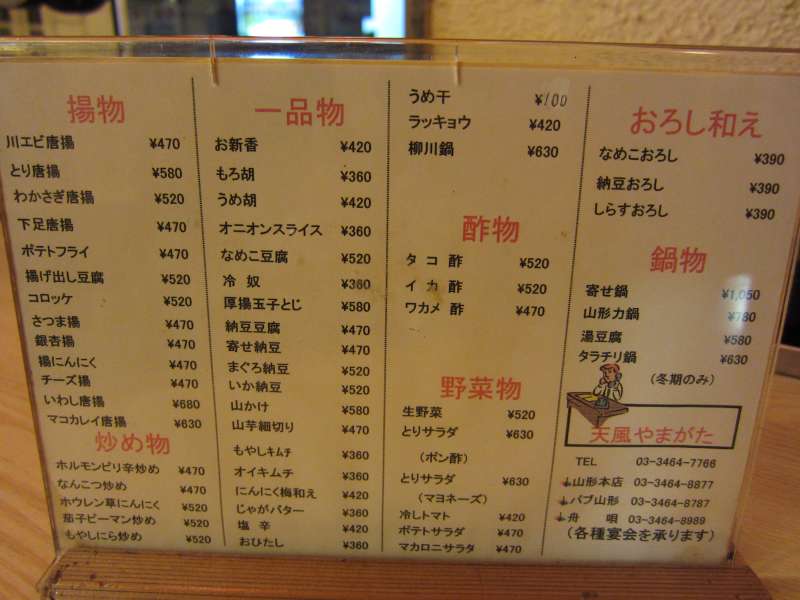 揚物
川エビ唐揚 ¥470
とり唐揚 ¥580
わかさぎ唐揚 ¥520
下足唐揚 ¥470
ポテトフライ ¥470
揚げ出し豆腐 ¥520
コロッケ ¥520
さつま揚 ¥470
銀杏揚 ¥470
揚にんにく ¥470
チーズ揚 ¥470
いわし唐揚 ¥680
マコカレイ唐揚 ¥630
炒め物
ホルモンピリ辛炒め ¥470
なんこつ炒め ¥470
ホウレン草にんにく ¥520
茄子ピーマン炒め ¥520
もやしにら炒め ¥520
一品物
お新香 ¥420
もろ胡 ¥360
うめ胡 ¥420
オニオンスライス ¥360
なめこ豆腐 ¥520
冷 奴 ¥360
厚揚玉子とじ ¥580
納豆豆腐 ¥470
寄せ納豆 ¥470
まぐろ納豆 ¥520
いか納豆 ¥520
山かけ ¥580
山芋細切り ¥470
もやしキムチ ¥360
オイキムチ ¥360
にんにく梅和え ¥420
じゃがバター ¥360
塩 辛 ¥420
おひたし ¥360
うめ干 ¥100
ラッキョウ ¥420
柳川鍋 ¥630
酢物
タコ酢 ¥520
イカ酢 ¥520
ワカメ酢 ¥470
野菜物
生野菜 ¥520
とりサラダ ¥630
(ポン酢)
とりサラダ ¥630
(マヨネーズ)
冷しトマト ¥420
ポテトサラダ ¥470
マカロニサラダ ¥470
おろし和え
なめこおろし ¥390
納豆おろし ¥390
しらすおろし ¥390
鍋物
寄せ鍋 ¥1,050
山形力鍋 ¥780
湯豆腐 ¥580
タラチリ鍋 ¥630
(冬期のみ)
天風やまがた
TEL 03-3464-7766
山形本店 03-3464-8877
パブ山形 03-3464-8787
舟 唄 03-3464-8989
(各種宴会を承ります)